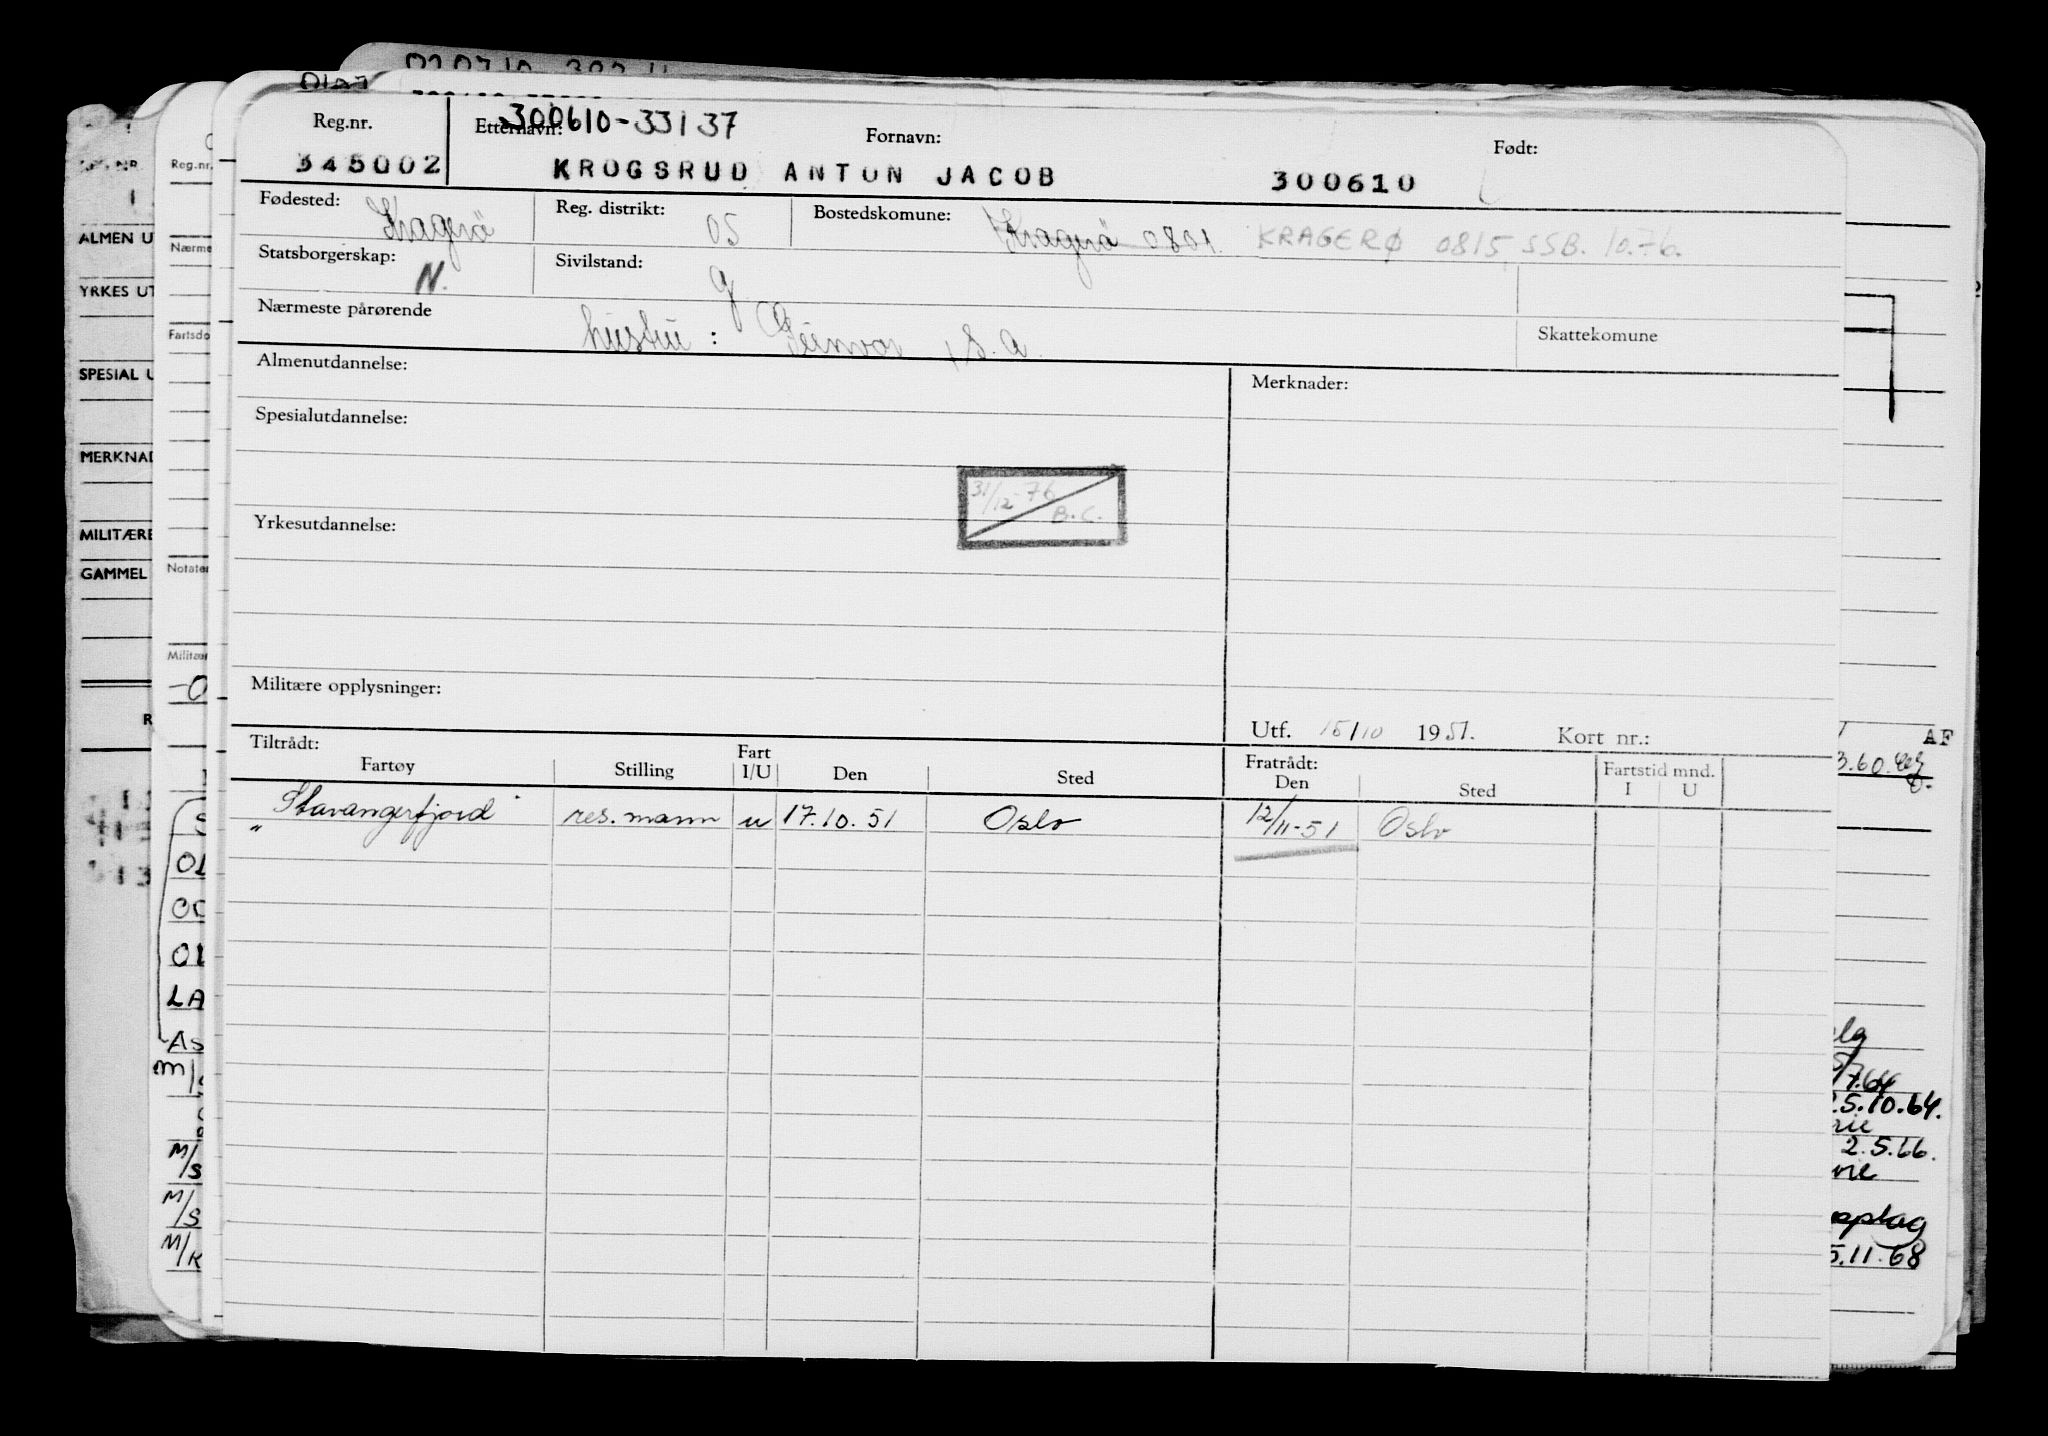 020710
Reg.nr. Etternavn: 300610-33137 Fornavn: Født:
345002 KROGSRUD ANTON JACOB 300610
Fødested: Kragerö Reg. distrikt: 05 Bostedskomune: Kragerö 0801 KRAGERØ 0815, SSB. 10.76.
Statsborgerskap: N. Sivilstand: g
Nærmeste pårørende hustru: S. A. Skattekomune
Almenutdannelse: Merknader:
Spesialutdannelse:
31/12-76 B.C.
Yrkesutdannelse:
Militære opplysninger:
Utf. 15/10 1951. Kort nr.:
Tiltrådt: Fartøy Stilling Fart I/U Den Sted Fratrådt: Den Sted Fartstid mnd. I U
"Stavangerfjord" res. mann u 17.10.51 Oslo 12/11-51 Oslo
Reg.nr.
ALMEN U
Nærme
YRKES UT
Fartsdo
SPESIAL U
MERKNAD
MILITÆRE
GAMMEL
Notater
Militær
OL
OL
LA
As
M/S
M/S
M/K
AF
3.60.
25.10.64.
2.5.66.
opplag
5.11.68